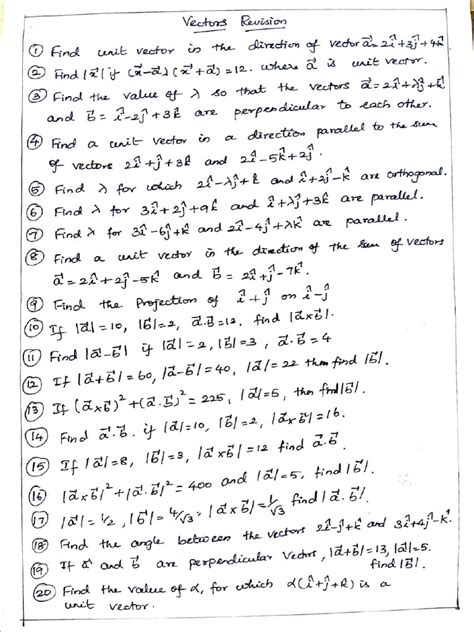 Vectors Revision
① Find unit vector in the direction of vector a⃗ = 2î+3ĵ+4k̂
② Find |x⃗| if (x⃗-a⃗)(x⃗+a⃗)=12. where a⃗ is unit vector.
③ Find the value of λ so that the vectors a⃗=2î+λĵ+k̂
and b⃗=î-2ĵ+3k̂ are perpendicular to each other.
④ Find a unit vector in a direction parallel to the sum
of vectors 2î+ĵ+3k̂ and 2î-5k̂+2ĵ.
⑤ Find λ for which 2î-λĵ+k̂ and î+2ĵ-k̂ are orthogonal.
⑥ Find λ for 3î+2ĵ+9k̂ and î+λĵ+3k̂ are parallel.
⑦ Find λ for 3î-6ĵ+k̂ and 2î-4ĵ+λk̂ are parallel.
⑧ Find a unit vector in the direction of the sum of vectors
a⃗=2î+2ĵ-5k̂ and b⃗=2î+ĵ-7k̂.
⑨ Find the Projection of î+ĵ on î-ĵ
⑩ If |a⃗|=10, |b⃗|=2, a⃗.b⃗=12, find |a⃗xb⃗|.
⑪ Find |a⃗-b⃗| if |a⃗|=2, |b⃗|=3, a⃗.b⃗=4
⑫ If |a⃗+b⃗|=60, |a⃗-b⃗|=40, |a⃗|=22 then find |b⃗|.
⑬ If (a⃗xb⃗)²+(a⃗.b⃗)²=225, |a⃗|=5, then find |b⃗|.
⑭ Find a⃗.b⃗. if |a⃗|=10, |b⃗|=2, |a⃗xb⃗|=16.
⑮ If |a⃗|=8, |b⃗|=3, |a⃗xb⃗|=12 find a⃗.b⃗.
⑯ |a⃗xb⃗|²+|a⃗.b⃗|²=400 and |a⃗|=5, find |b⃗|.
⑰ |a⃗|=1/2, |b⃗|=4/√3, |a⃗xb⃗|=1/√3 find |a⃗.b⃗|.
⑱ Find the angle between the vectors 2î-ĵ+k̂ and 3î+4ĵ-k̂.
⑲ If a⃗ and b⃗ are perpendicular vectors, |a⃗+b⃗|=13, |a⃗|=5.
find |b⃗|.
⑳ Find the value of α, for which α(î+ĵ+k̂) is a
unit vector.